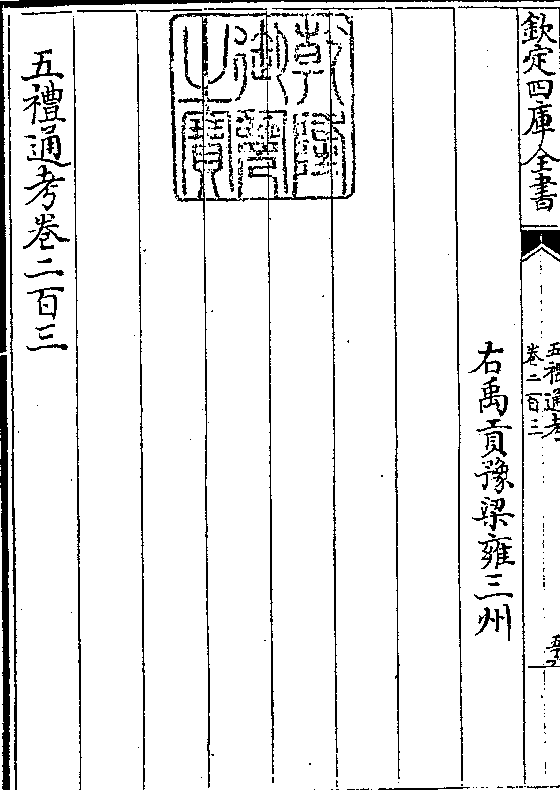 欽定四庫全書
五禮通考
卷二百三
右禹貢豫梁雍三州
乾隆御覽之寶
五禮通考卷二百三